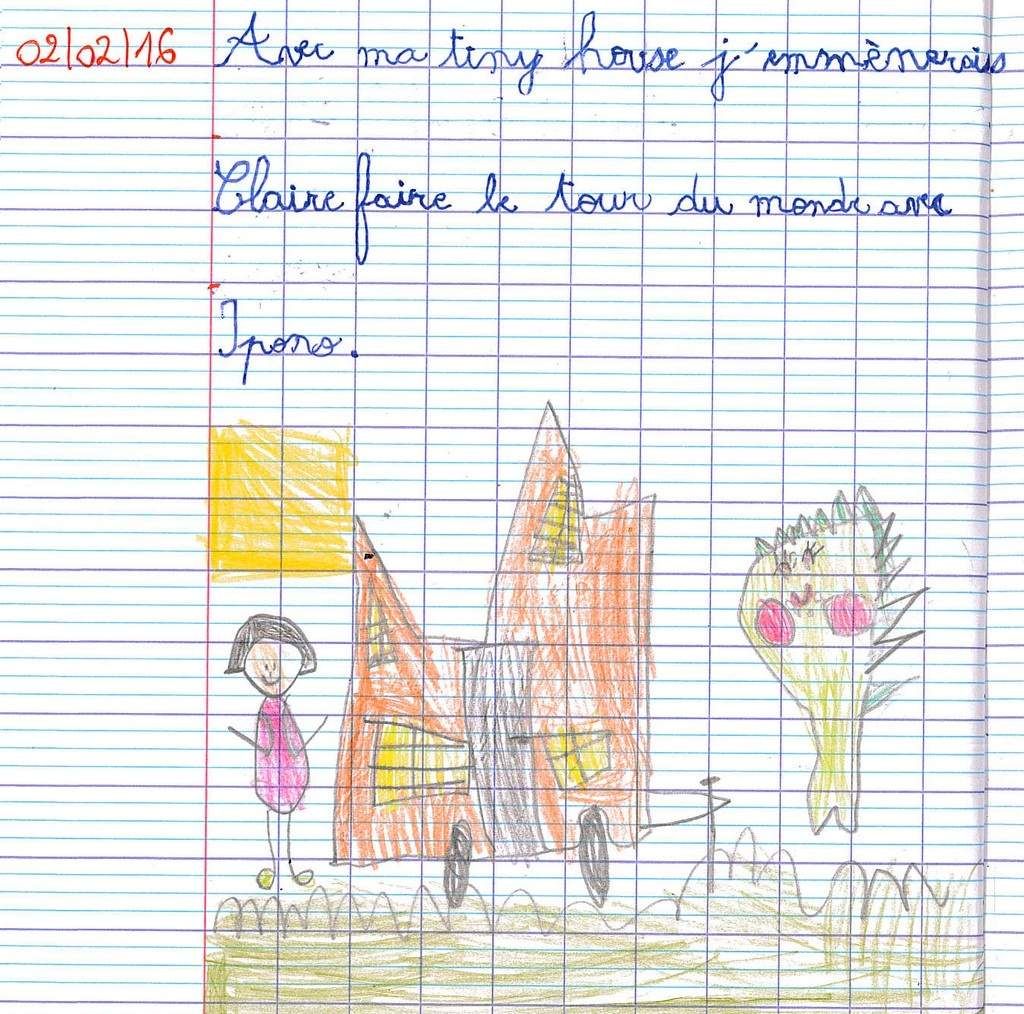 02/02/16 Avec ma tiny house j'emmènerais
Claire faire le tour du monde avec
Ipono.